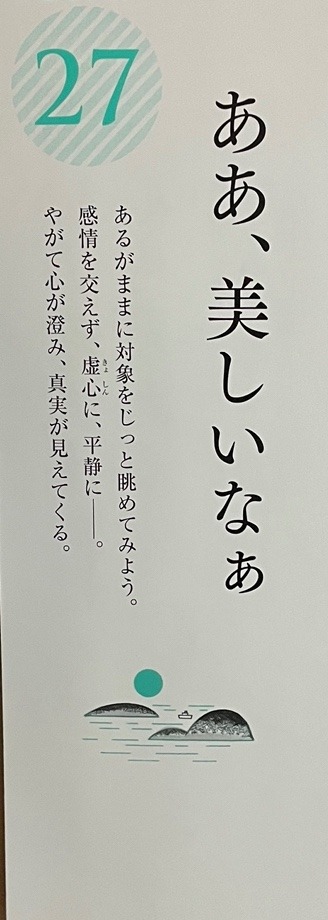 27
ああ、美しいなぁ
あるがままに対象をじっと眺めてみよう。
感情を交えず、虚心に、平静に――。
きょしん
やがて心が澄み、真実が見えてくる。